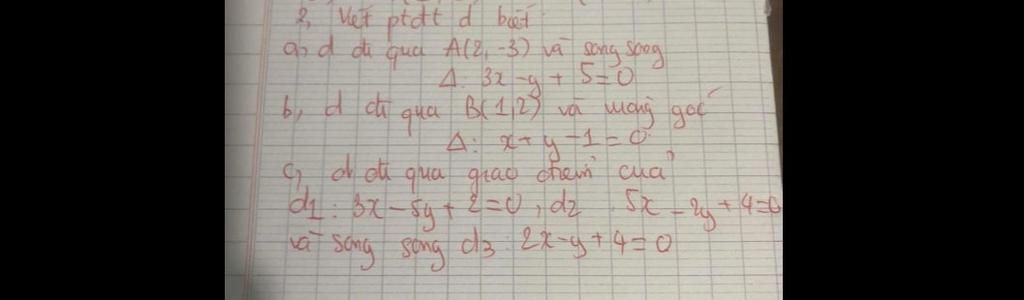 2, Viết ptđt d biết
a, d đi qua A(2, -3) và song song
Δ: 3x - y + 5 = 0
b, d đi qua B(1, 2) và vuông góc
Δ: x + y - 1 = 0
c, d đi qua giao điểm của
d1: 3x - 5y + 2 = 0, d2 5x - 2y + 4 = 0
và song song d3: 2x - y + 4 = 0